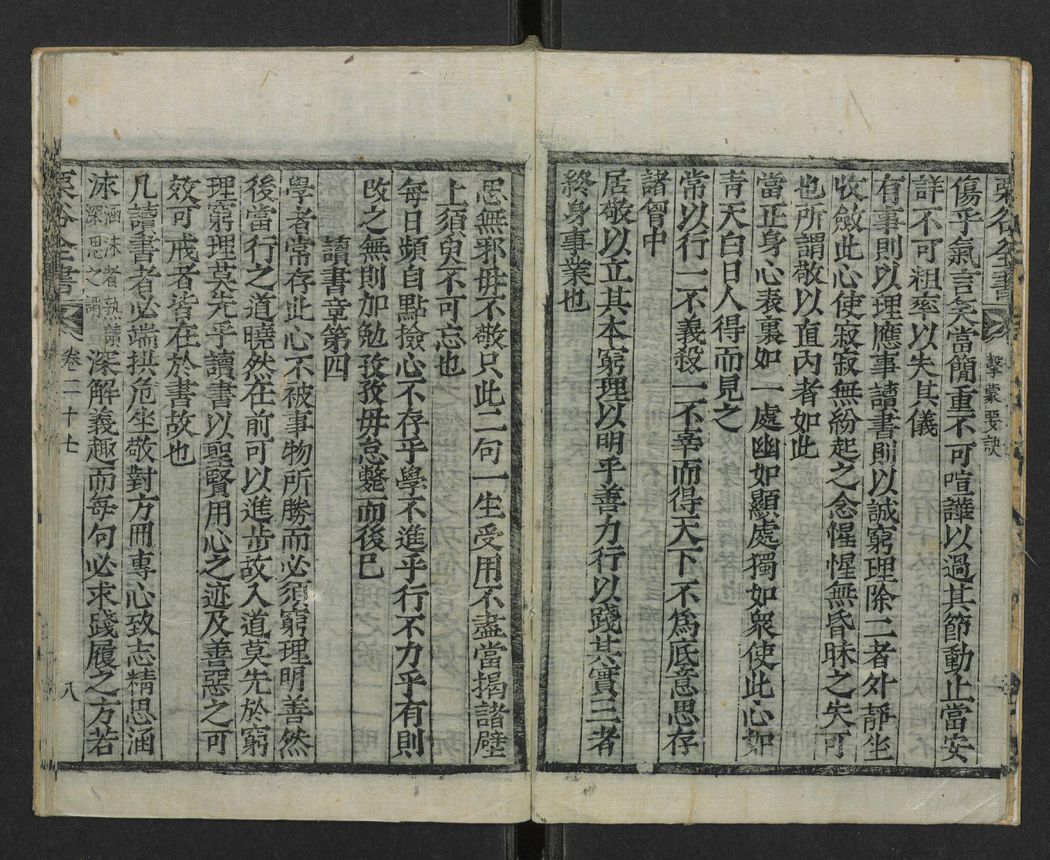 栗谷全書 擊蒙要訣
傷乎氣言笑當簡重不可喧譁以過其節動止當安
詳不可粗率以失其儀
有事則以理應事讀書則以誠窮理除二者外靜坐
收斂此心使寂寂無紛起之念惺惺無昏昧之失可
也所謂敬以直內者如此
當正身心表裏如一處幽如顯處獨如衆使此心如
靑天白日人得而見之
常以行一不義殺一不辜而得天下不爲底意思存
諸胷中
居敬以立其本窮理以明乎善力行以踐其實三者
終身事業也
思無邪毋不敬只此二句一生受用不盡當揭諸壁
上須臾不可忘也
每日頻自點撿心不存乎學不進乎行不力乎有則
改之無則加勉孜孜毋怠斃而後已
讀書章第四
學者常存此心不被事物所勝而必須窮理明善然
後當行之道曉然在前可以進步故入道莫先於窮
理窮理莫先乎讀書以聖賢用心之迹及善惡之可
效可戒者皆在於書故也
凡讀書者必端拱危坐敬對方冊專心致志精思涵
泳涵泳者熟讀深思之謂深解義趣而每句必求踐履之方若
栗谷全書 卷二十七 八